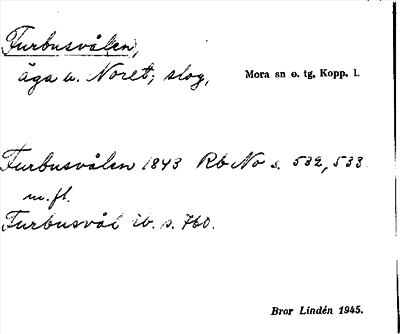 Furbusvålen,
äga u. Noret; slog,
Mora sn o. tg, Kopp. l.
Furbusvålen 1843 Rb No s. 532, 533
m.fl.
Furbusvål ib. s. 760.
Bror Lindén 1945.